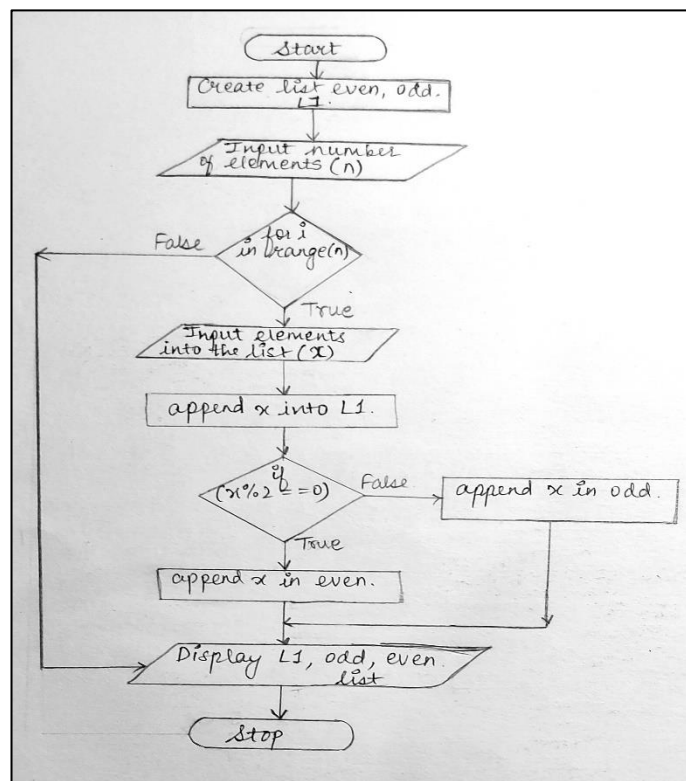 Start
Create list even, odd.
L1.
Input number
of elements (n)
for i
in range(n)
False
True
Input elements
into the list (x)
append x into L1.
if
(x%2 == 0)
False
append x in odd.
True
append x in even.
Display L1, odd, even.
list
Stop